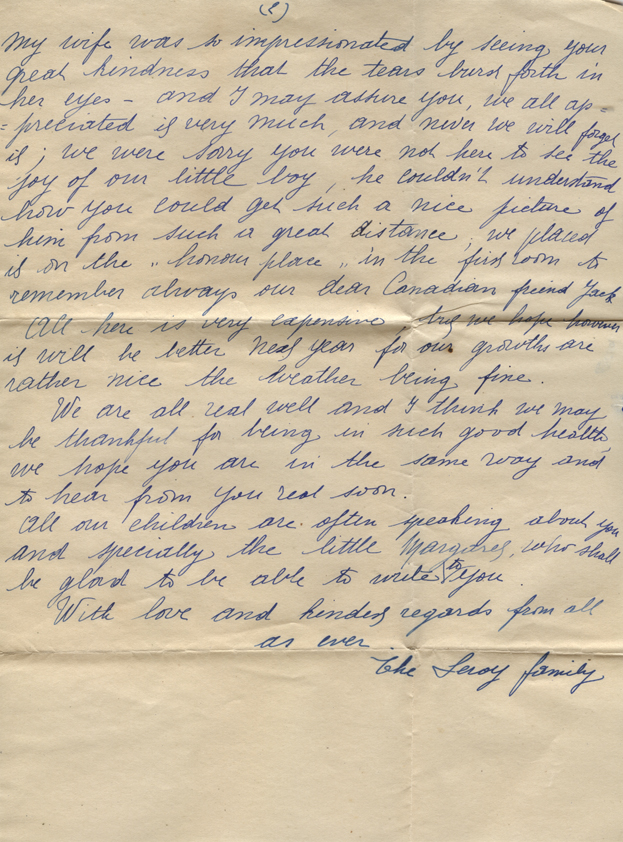 (2)
My wife was so impressionated by seeing your
great kindness that the tears burst forth in
her eyes – and I may assure you, we all ap=
=preciated it very much, and never we will forget
it; we were sorry you were not here to see the
joy of our little boy, he couldn't understand
how you could get such a nice picture of
him from such a great distance, we placed
it on the „ honour place „ in the first room to
remember always our dear Canadian friend Jack
All here is very expensive, but we hope however
it will be better next year for our growths are
rather nice the weather being fine.
We are all real well and I think we may
be thankful for being in such good health,
we hope you are in the same way and
to hear from you real soon.
All our children are often speaking about you
and specially the little Margaret, who shall
be glad to be able to write to you.
With love and kindest regards from all
as ever.
The Leroy family